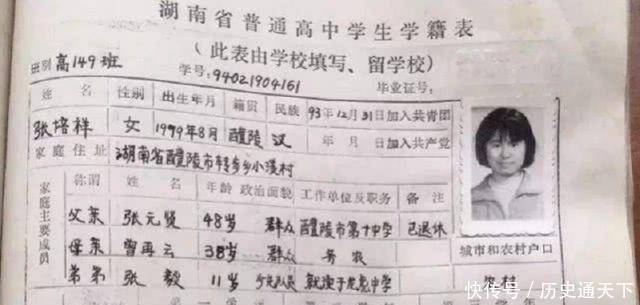 湖南省普通高中学生学籍表
(此表由学校填写、留学校)
班别 高149班 学号:94021904161 毕业证号:
姓名 性别 出生年月 籍贯 民族 93年12月31日加入共青团
张培祥 女 1979年8月 醴陵 汉 年 月 日加入共产党
家庭住址 湖南省醴陵市转步乡小溪村
家庭主要成员 称谓 姓名 年龄 政治面貌 工作单位及职务 备注
父亲 张元贤 48岁 群众 醴陵市第十中学 已退休
城市和农村户口
母亲 曾再云 38岁 群众 务农
弟弟 张毅 11岁 少先队员 就读于 中学 农村
快传号/历史通天下